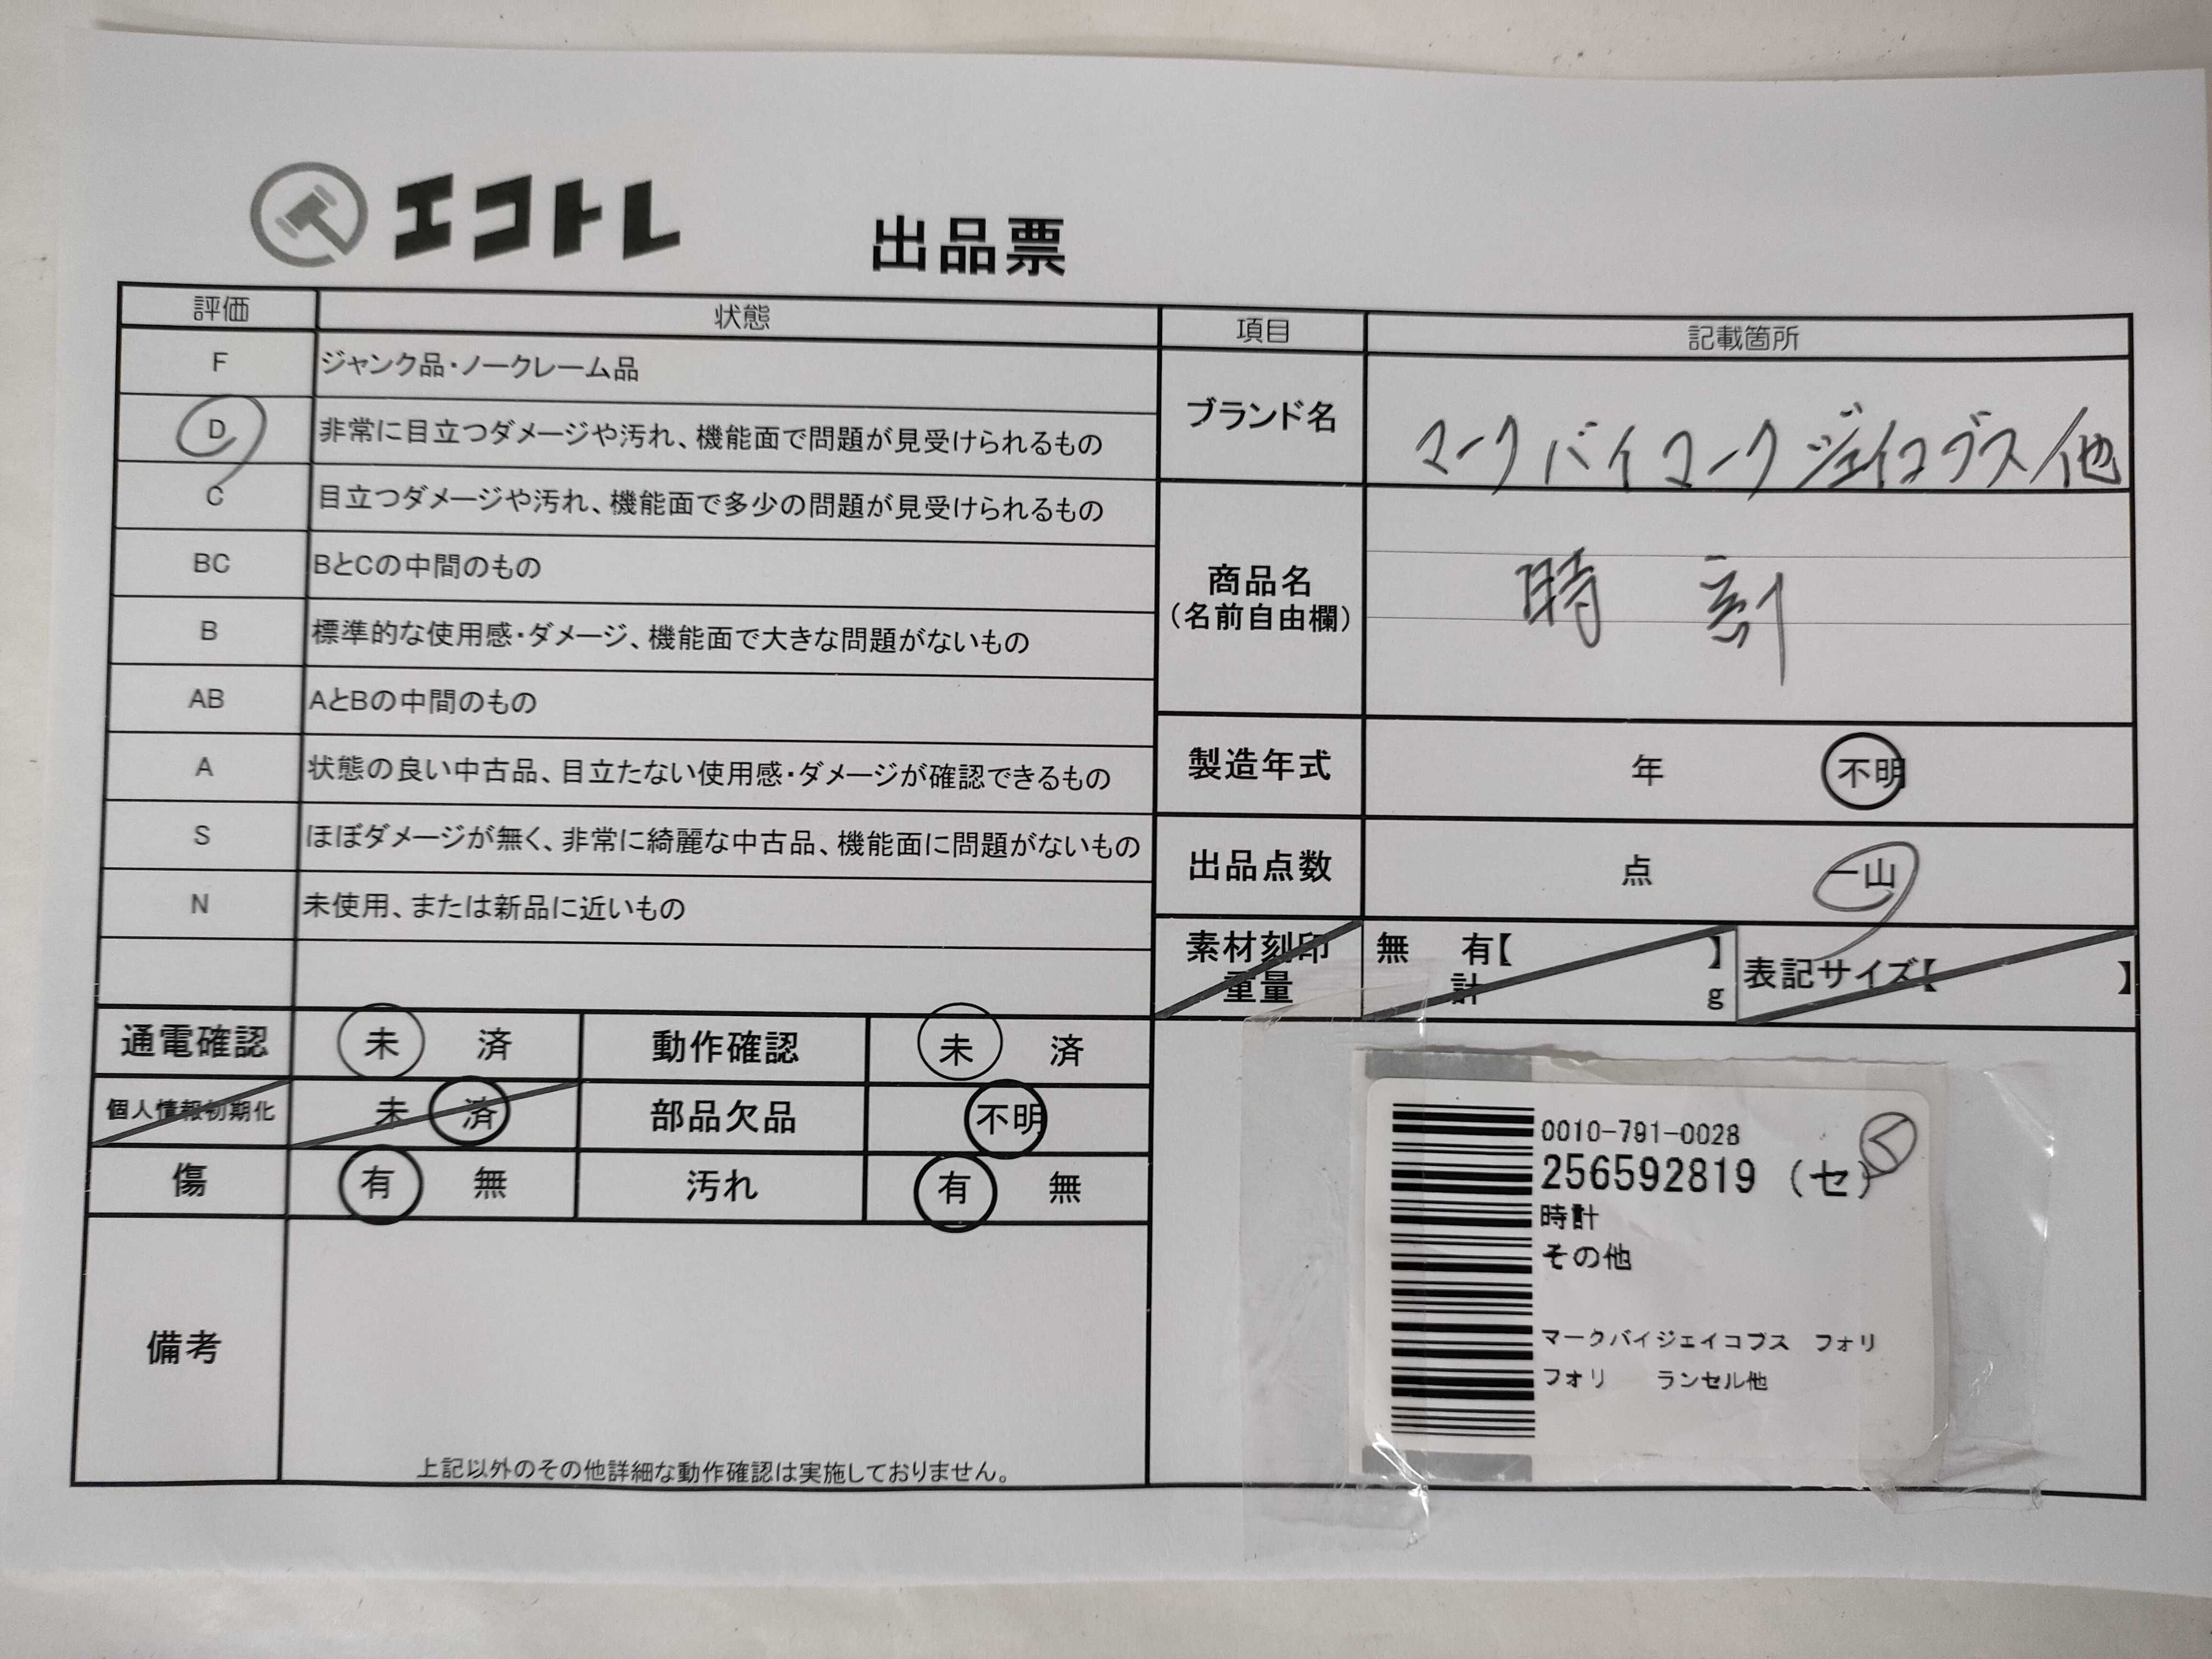 エコトレ
出品票
評価 状態
F ジャンク品・ノークレーム品
D 非常に目立つダメージや汚れ、機能面で問題が見受けられるもの
C 目立つダメージや汚れ、機能面で多少の問題が見受けられるもの
BC BとCの中間のもの
B 標準的な使用感・ダメージ、機能面で大きな問題がないもの
AB AとBの中間のもの
A 状態の良い中古品、目立たない使用感・ダメージが確認できるもの
S ほぼダメージが無く、非常に綺麗な中古品、機能面に問題がないもの
N 未使用、または新品に近いもの
通電確認 未 済 動作確認 未 済
個人情報初期化 未 済 部品欠品 不明
傷 有 無 汚れ 有 無
備考
上記以外のその他詳細な動作確認は実施しておりません。
項目 記載箇所
ブランド名 マークバイマークジェイコブス/他
商品名
(名前自由欄)
時 刻
製造年式 年 不明
出品点数 点 一山
素材刻印 無 有【 】
重量 計 g
表記サイズ【 】
0010-791-0028
256592819 (セ)
時計
その他
マークバイジェイコブス フォリ
フォリ ランセル他